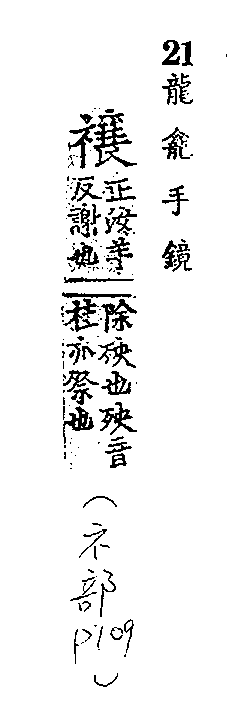 21 龍龕手鏡
禳
正汝羊
反謝也
除殃也殃音
桂亦祭也
(ネ部 P109)